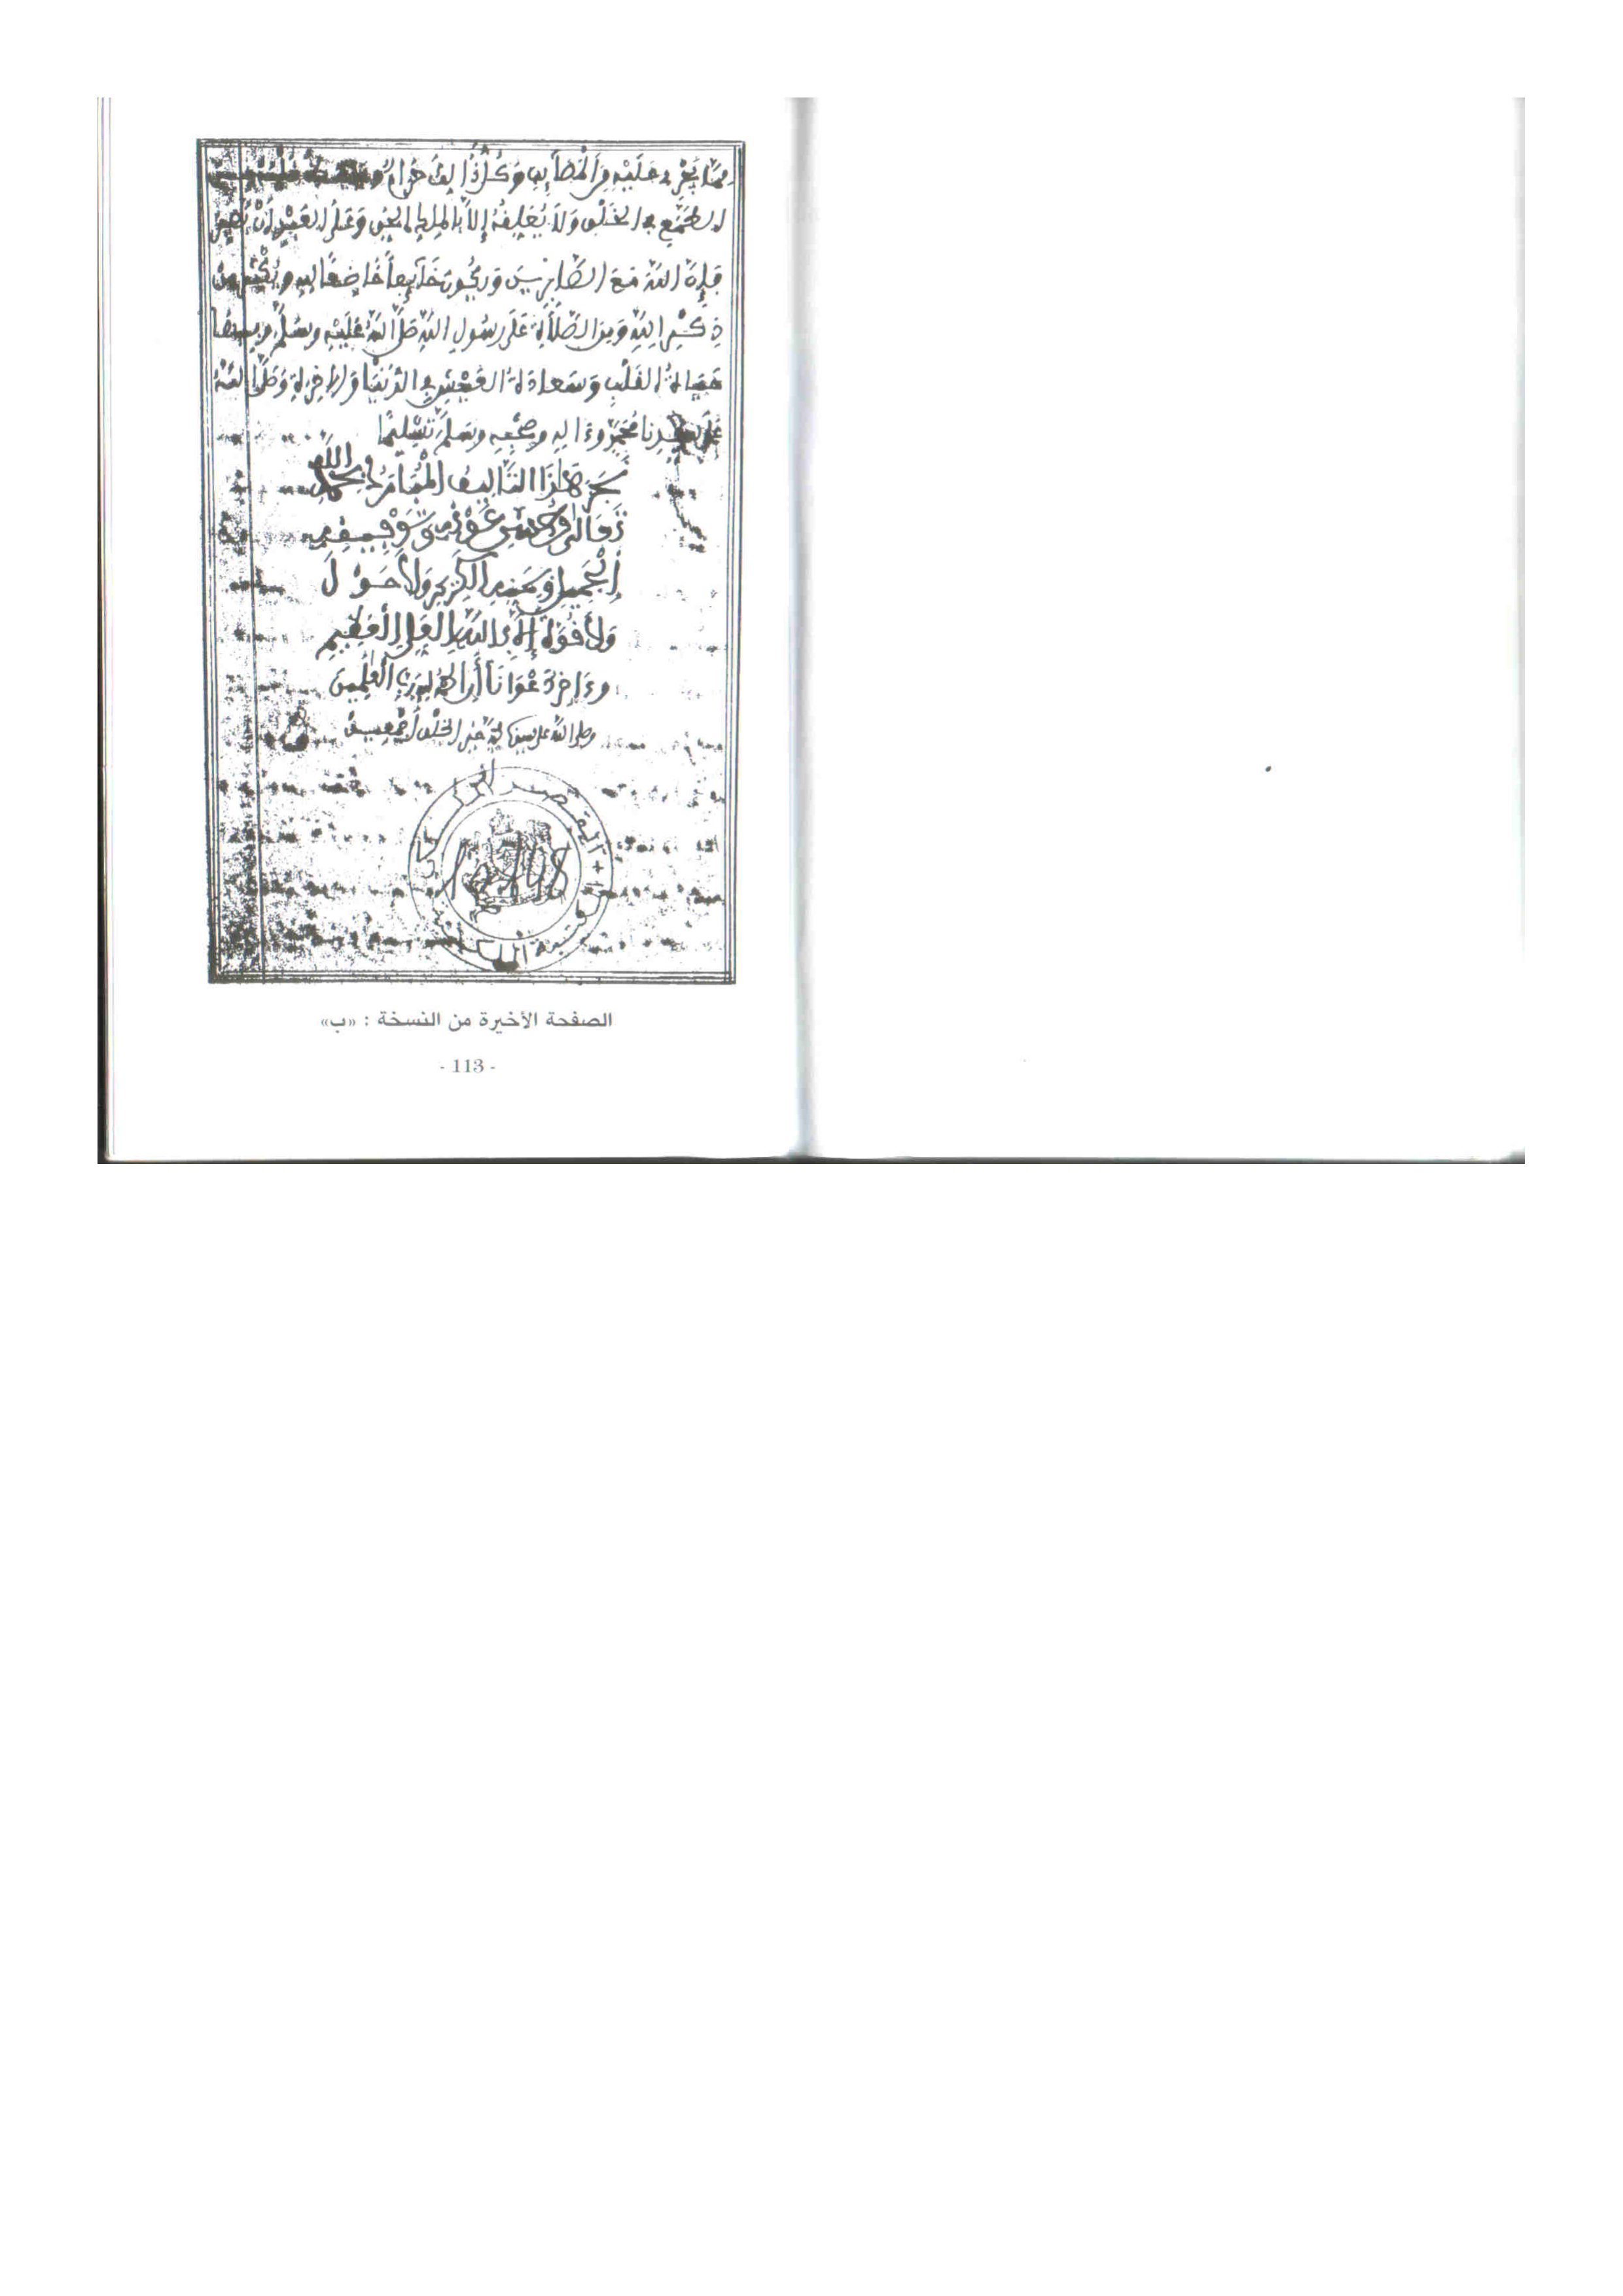 مِمَّا يَجْرِي عَلَيْهِ مِنَ الْمَصَآئِبِ وَكُلُّ ذَالِكَ حَرَامٌ
الطَّمَعِ فِي الْخَلْقِ وَلَا يُعَلِّقُهُ إِلَّا بِالْمَلِكِ الْحَقِّ وَعَلَى الْعَبْدِ أَنْ يَصْبِرَ
فَإِنَّ اللَّهَ مَعَ الصَّابِرِينَ وَيَكُونَ خَآئِفاً خَاضِعًا لِلهِ وَيُكْثِرَ مِن
ذِكْرِ اللَّهِ وَمِنَ الصَّلَاةِ عَلَى رَسُولِ اللَّهِ صَلَّى اللَّهُ عَلَيْهِ وَسَلَّمَ
حَيَاةُ الْقَلْبِ وَسَعَادَةُ الْعَيْشِ فِي الدُّنْيَا وَالْآخِرَةِ وَصَلَّى اللَّهُ
عَلَى سَيِّدِنَا مُحَمَّدٍ وَءَالِهِ وَصَحْبِهِ وَسَلَّمَ تَسْلِيمًا
نَجَزَ هَذَا التَّأْلِيفُ الْمُبَارَكُ بِحَمْدِ اللَّهِ
تَعَالَى وَحُسْنِ عَوْنِهِ وَتَوْفِيقِهِ
الْجَمِيلِ وَيُمْنِهِ الْكَرِيمِ وَلَا حَوْلَ
وَلَا قُوَّةَ إِلَّا بِاللَّهِ الْعَلِيِّ الْعَظِيمِ
وَءَاخِرُ دَعْوَانَا أَنِ الْحَمْدُ لِلهِ رَبِّ الْعَٰلَمِينَ
وصلى الله على سيدنا محمد خير الخلق أجمعين
الصفحة الأخيرة من النسخة : «ب»
- 113 -